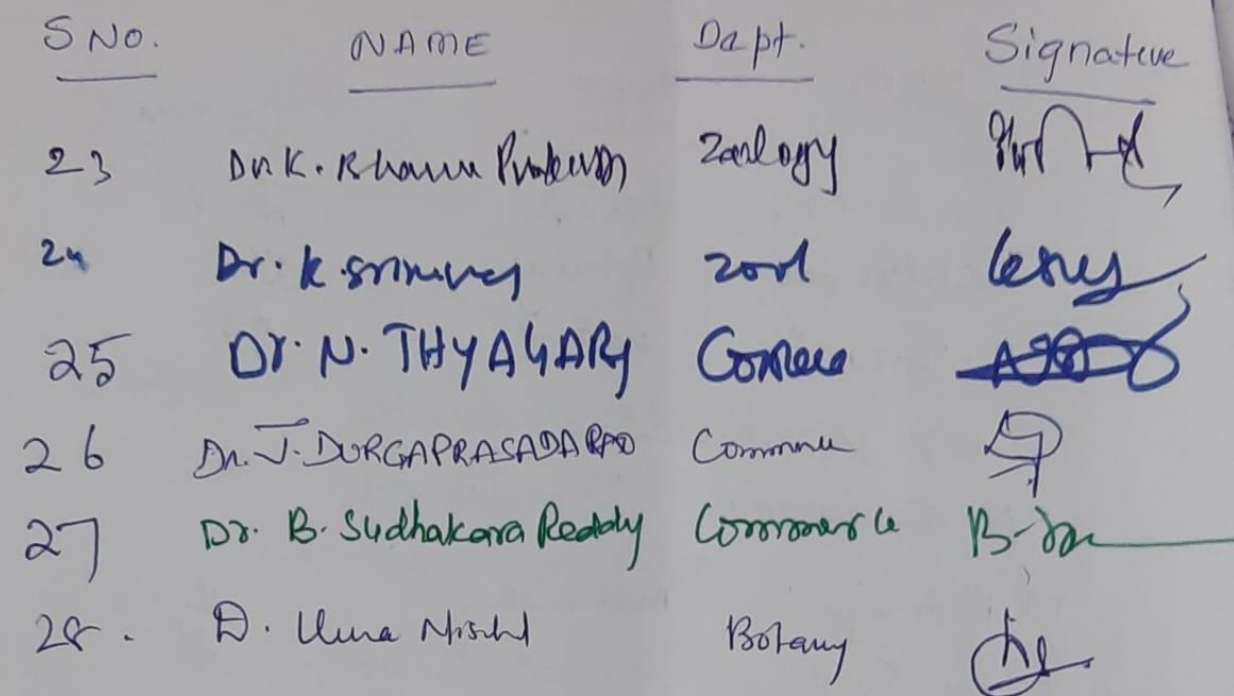 S NO. NAME Dept. Signature
23 Dr. K. Bhanu Prakash Zoology
24 Dr. K. Srinivas Zool
25 Dr. N. THYAGARAJ
26 Dr. J. DURGAPRASADA RAO Commerce
27 Dr. B. Sudhakara Reddy Commerce
28. D. Uma Botany